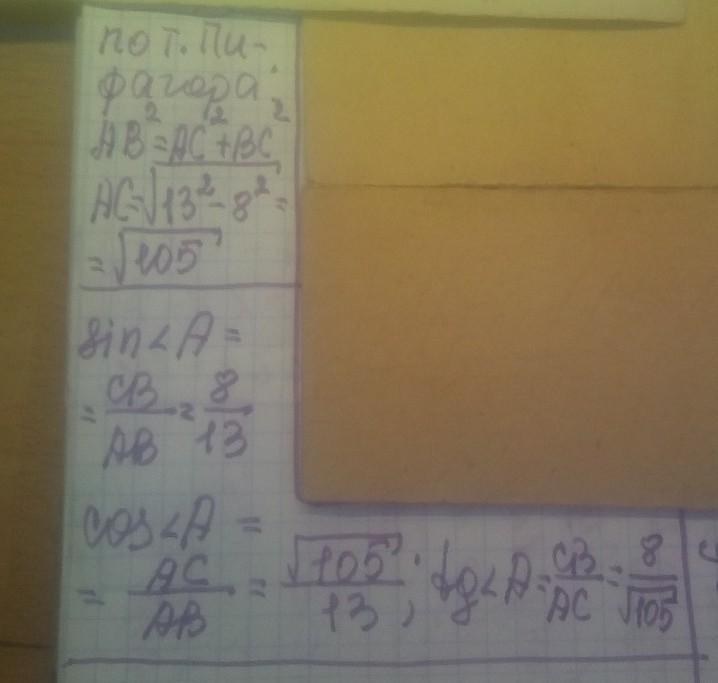 по т. Пи-
фагора:
AB²=AC²+BC²
AC=√13²-8²=
=√105
sin∠A=
=CB/AB=8/13
cos∠A=
=AC/AB=√105/13; tg∠A=CB/AC=8/√105